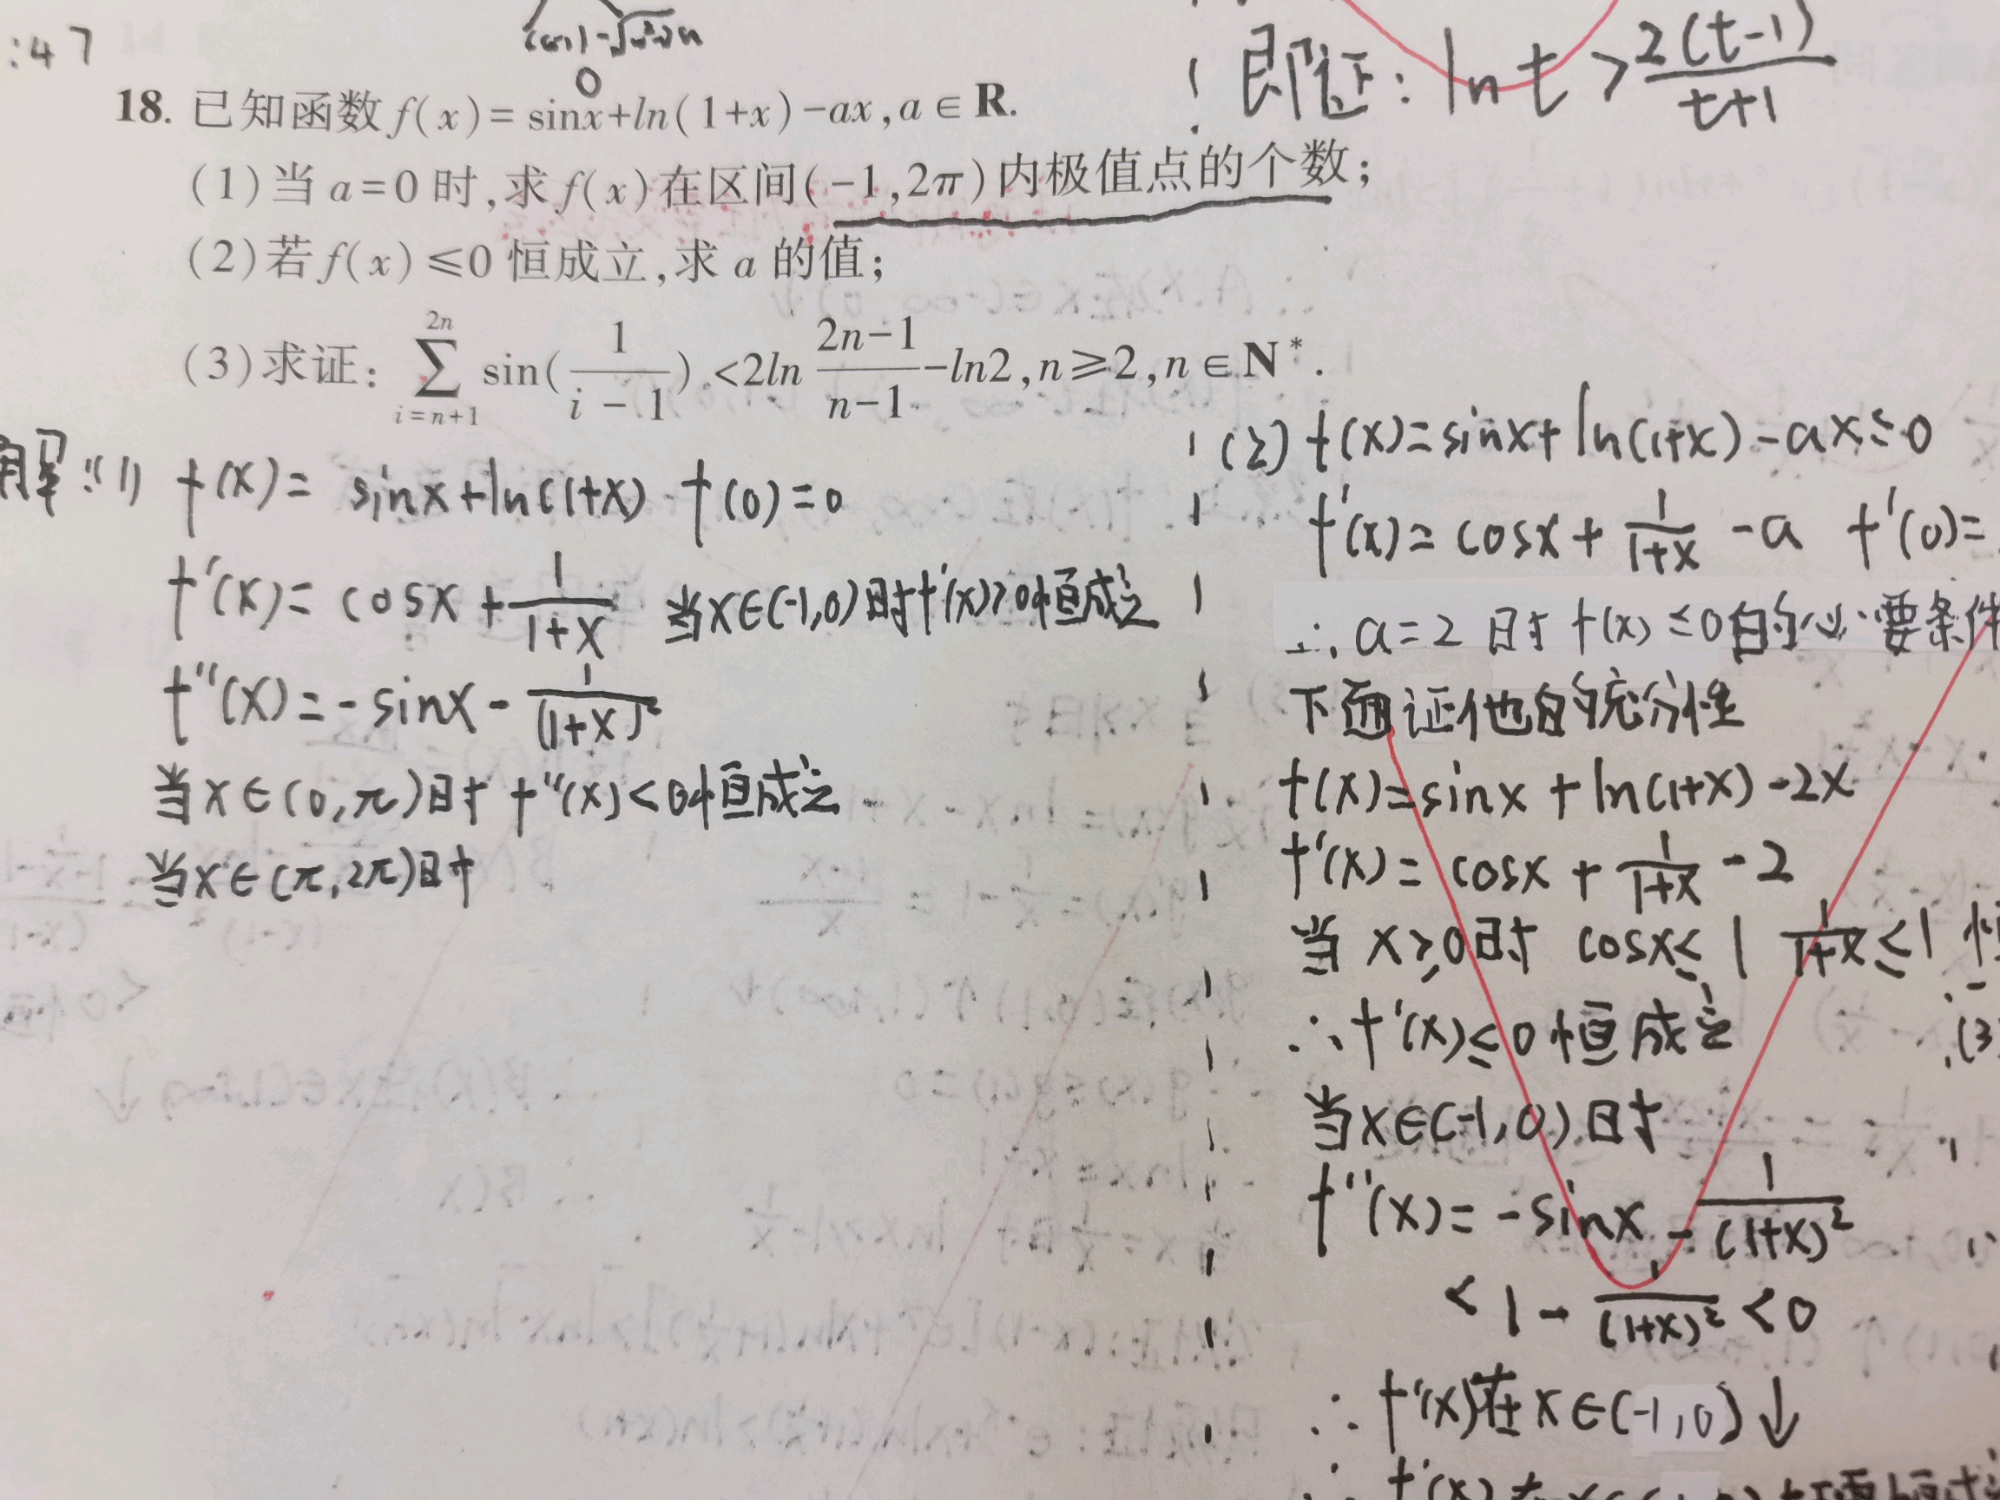 :47
0
即证: ln t > 2(t-1)/(t+1)
18. 已知函数 f(x)=sinx+ln(1+x)-ax, a∈R.
(1)当 a=0 时,求 f(x)在区间(-1,2π)内极值点的个数;
(2)若 f(x)≤0 恒成立,求 a 的值;
(3)求证: ∑_{i=n+1}^{2n} sin(1/(i-1)) <2ln (2n-1)/(n-1) -ln2, n≥2, n∈N*.
解:(1) f(x)= sinx+ln(1+x) f(0)=0
f'(x)= cosx+1/(1+x) 当x∈(-1,0)时f'(x)>0恒成立
f''(x)=-sinx-1/(1+x)²
当x∈(0,π)时 f''(x)<0恒成立
当x∈(π,2π)时
(2) f(x)=sinx+ln(1+x)-ax≤0
f'(x)=cosx+1/(1+x)-a f'(0)=
∴a=2 时 f(x)≤0的必要条件
下面证他的充分性
f(x)=sinx+ln(1+x)-2x
f'(x)=cosx+1/(1+x)-2
当 x≥0时 cosx≤1 1/(1+x)≤1
∴f'(x)≤0恒成立
(3
当x∈(-1,0)时
f''(x)=-sinx-1/(1+x)²
<1-1/(1+x)²<0
∴f'(x)在x∈(-1,0)↓